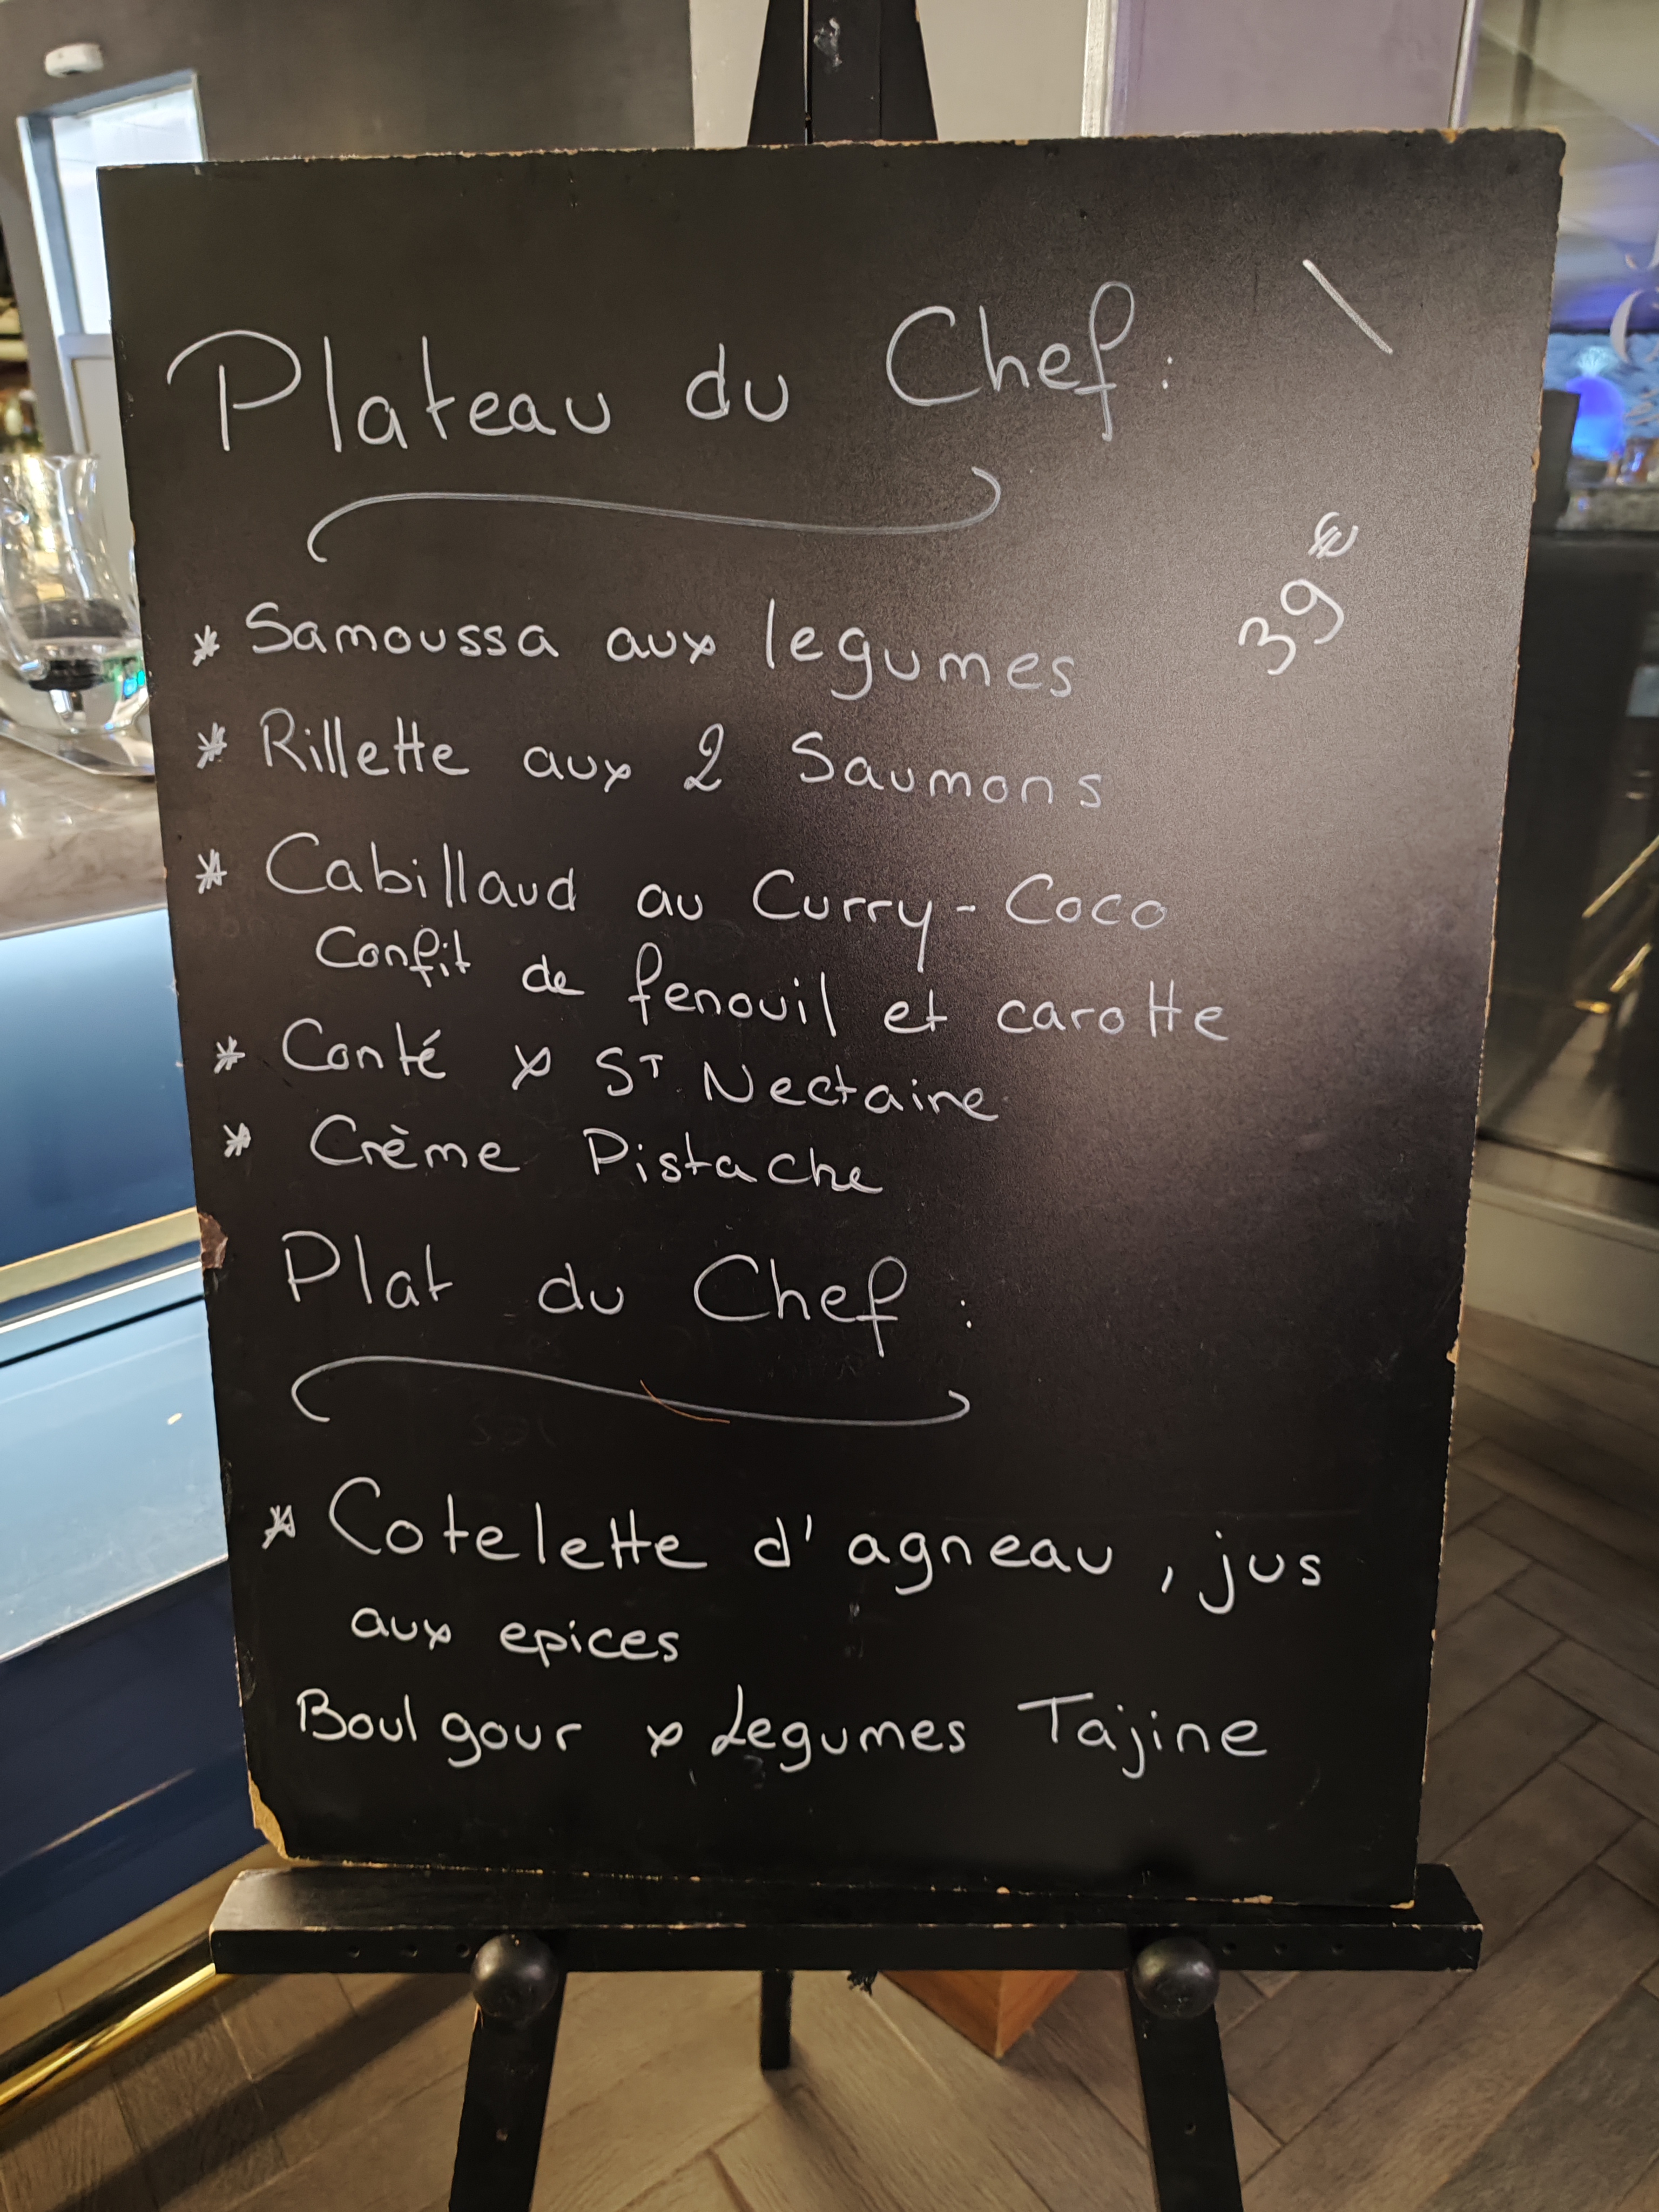 Plateau du Chef :
39€
* Samoussa aux legumes
* Rillette aux 2 Saumons
* Cabillaud au Curry-Coco
Confit de fenouil et carotte
* Conté x ST Nectaire
* Crème Pistache
Plat du Chef :
* Cotelette d'agneau, jus
aux epices
Boulgour x Legumes Tajine